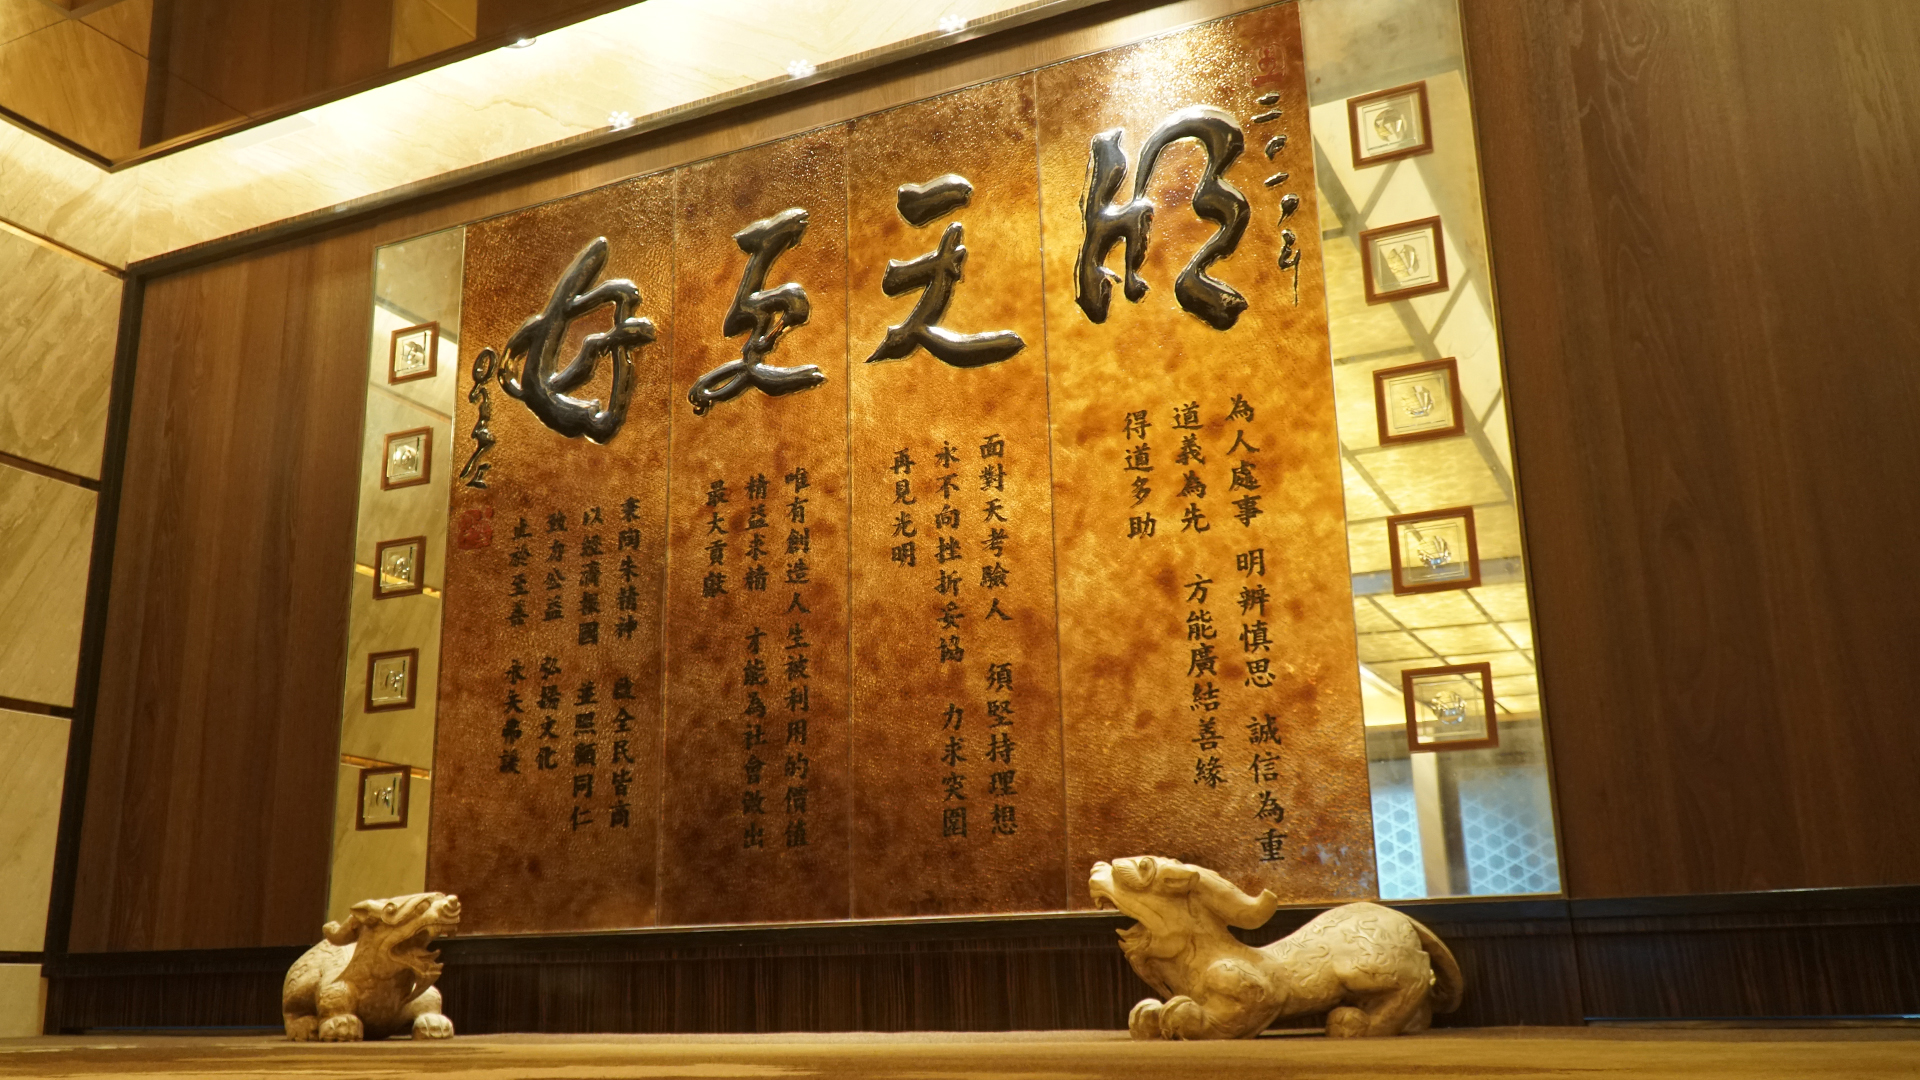 二〇一〇年
明天更好
星雲
為人處事 明辨慎思 誠信為重
道義為先 方能廣結善緣
得道多助
面對天考驗人 須堅持理想
永不向挫折妥協 力求突圍
再見光明
唯有創造人生被利用的價值
精益求精 才能為社會做出
最大貢獻
秉陶朱精神 全民皆商
以經濟國 並照顧同仁
致力公益 弘揚文化
止於至善 永矢弗諼